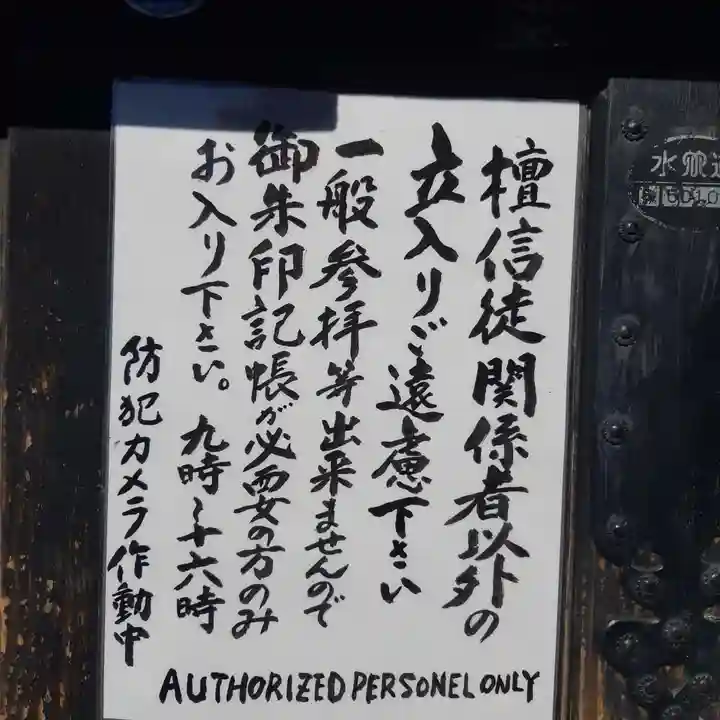 檀信徒関係者以外の
立入りご遠慮下さい
一般参拝等出来ませんので
御朱印記帳が必要の方のみ
お入り下さい。九時〜十六時
防犯カメラ作動中
AUTHORIZED PERSONEL ONLY